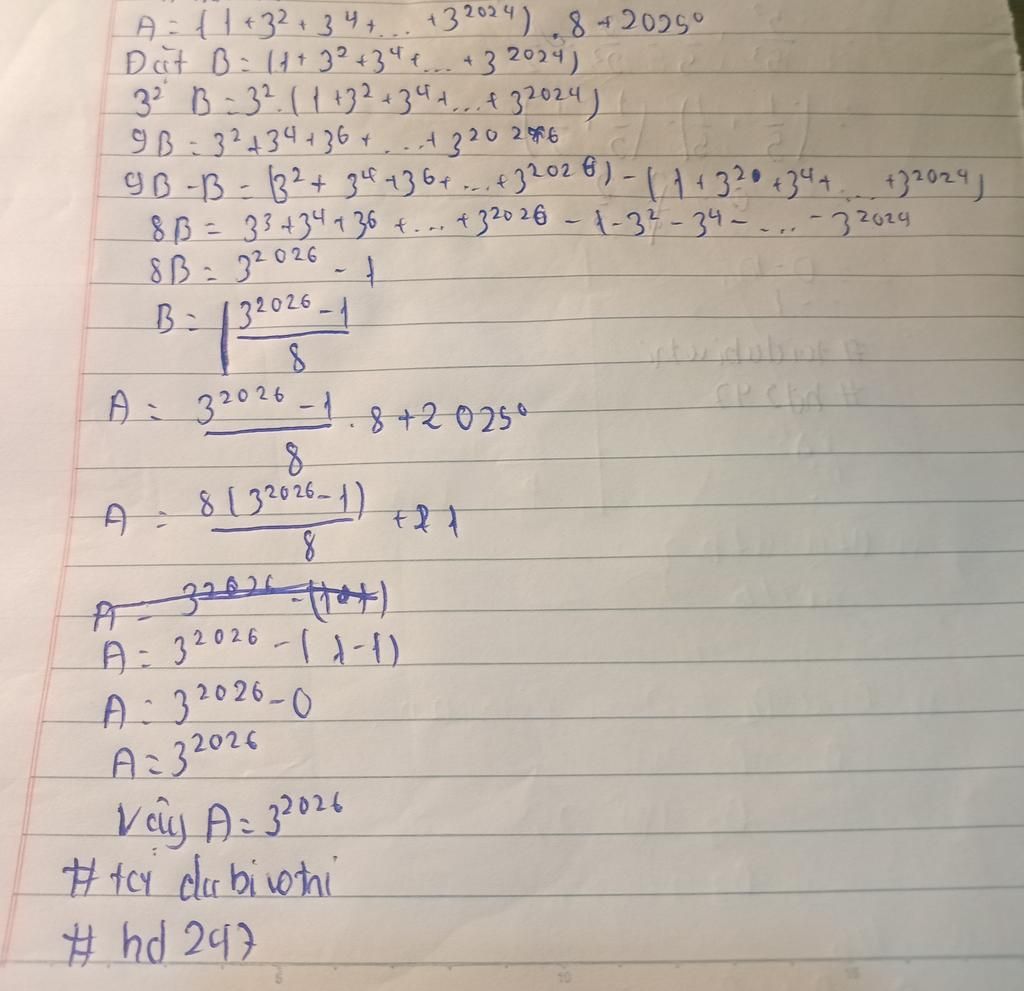 A = (1 + 3² + 3⁴ + ... + 3²⁰²⁴) . 8 + 2025⁰
Đặt B = (1 + 3² + 3⁴ + ... + 3²⁰²⁴)
3² B = 3² . (1 + 3² + 3⁴ + ... + 3²⁰²⁴)
9B = 3² + 3⁴ + 3⁶ + ... + 3²⁰²⁶
9B - B = (3² + 3⁴ + 3⁶ + ... + 3²⁰²⁶) - (1 + 3² + 3⁴ + ... + 3²⁰²⁴)
8B = 3³ + 3⁴ + 3⁶ + ... + 3²⁰²⁶ - 1 - 3² - 3⁴ - ... - 3²⁰²⁴
8B = 3²⁰²⁶ - 1
B = (3²⁰²⁶ - 1)/8
A = (3²⁰²⁶ - 1)/8 . 8 + 2025⁰
A = 8(3²⁰²⁶ - 1)/8 + 1
A = 3²⁰²⁶ - (1 - 1)
A = 3²⁰²⁶ - 0
A = 3²⁰²⁶
Vậy A = 3²⁰²⁶
# hd 247